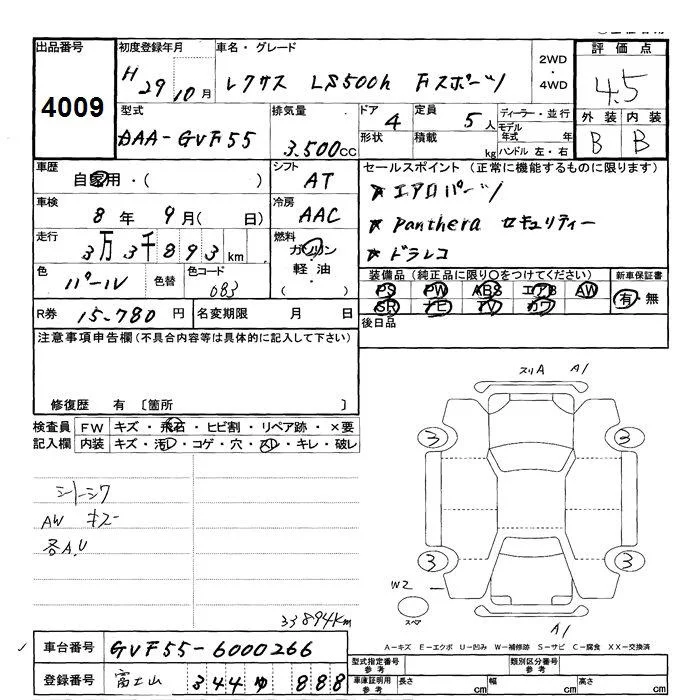 出品番号 初度登録年月 車名・グレード 2WD ・ 4WD 評価点
4009 H 29 10月 レクサス LS500h Fスポーツ 4.5
型式 排気量 ドア 定員 ディーラー・並行 外装 内装
DAA-GVF55 3.500cc 4 5人 モデル年式 年 B B
形状 積載 kg ハンドル 左・右
車歴 自家用・( ) シフト AT セールスポイント (正常に機能するものに限ります)
車検 8年 9月( 日) 冷房 AAC ★エアロパーツ
★Panthera セキュリティー
走行 3万3千893km 燃料 ガソリン ★ドラレコ
軽油・( )
色 パール 色替 色コード 083 装備品 (純正品に限り○をつけてください) 新車保証書
PS PW ABS エアB AW 有・無
SR ナビ TV カワ
R券 15.780円 名変期限 月 日 後日品
注意事項申告欄 (不具合内容等は具体的に記入して下さい)
修復歴 有 〔箇所 〕
検査員 FW キズ・飛石・ヒビ割・リペア跡・×要
記入欄 内装 キズ・汚レ・コゲ・穴・スレ・キレ・破レ
スリA A1
3 3
AW キズ
各A.U
3 3
W2
スペア
33894km
A1
A-キズ E-エクボ U-凹み W-補修跡 S-サビ C-腐食 XX-交換済
車台番号 GVF55-6000266
型式指定番号 参考 類別区分番号 参考
登録番号 富士山 344 ゆ 888
車庫証明用 参考 長さ cm 幅 cm 高さ cm